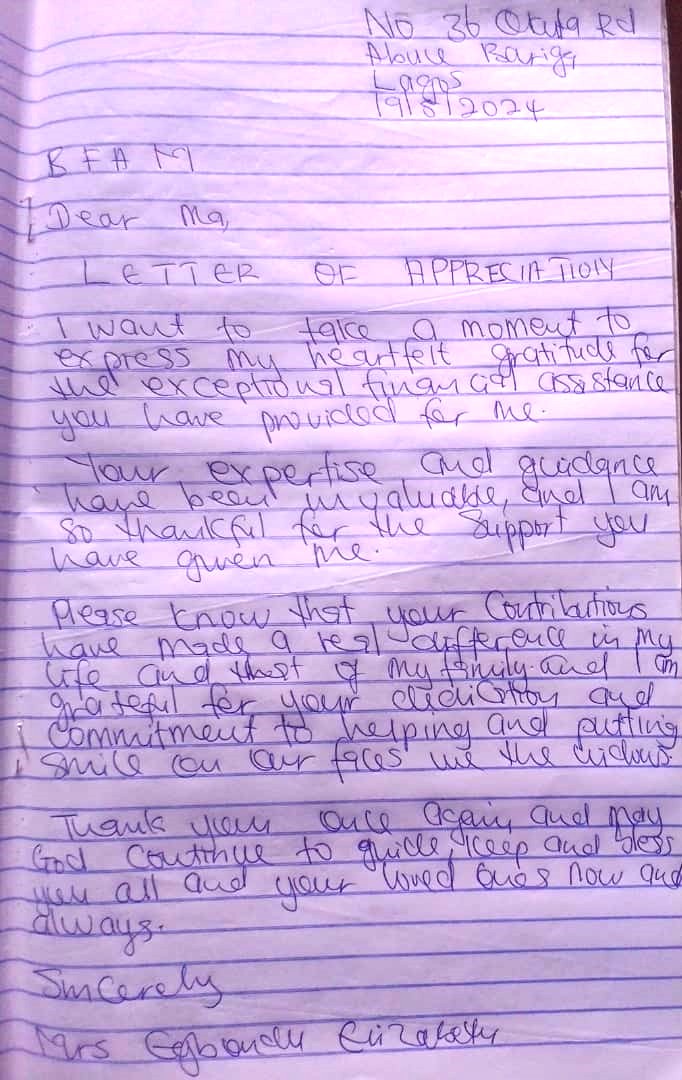 No 36 Rd
Abule Bariga
Lagos
19/8/2024
BFAM
Dear Ma,
LETTER OF APPRECIATION
I want to take a moment to
express my heartfelt gratitude for
the exceptional financial assistance
you have provided for me.
Your expertise and guidance
have been invaluable, and I am
so thankful for the support you
have given me.
Please know that your Contributions
have made a real difference in my
life and that of my family and I am
grateful for your and
Commitment to helping and putting
smile on our faces we the widows.
Thank you once again and may
God Continue to guide, keep and bless
you all and your loved ones now and
always.
Sincerely
Mrs Elizabeth